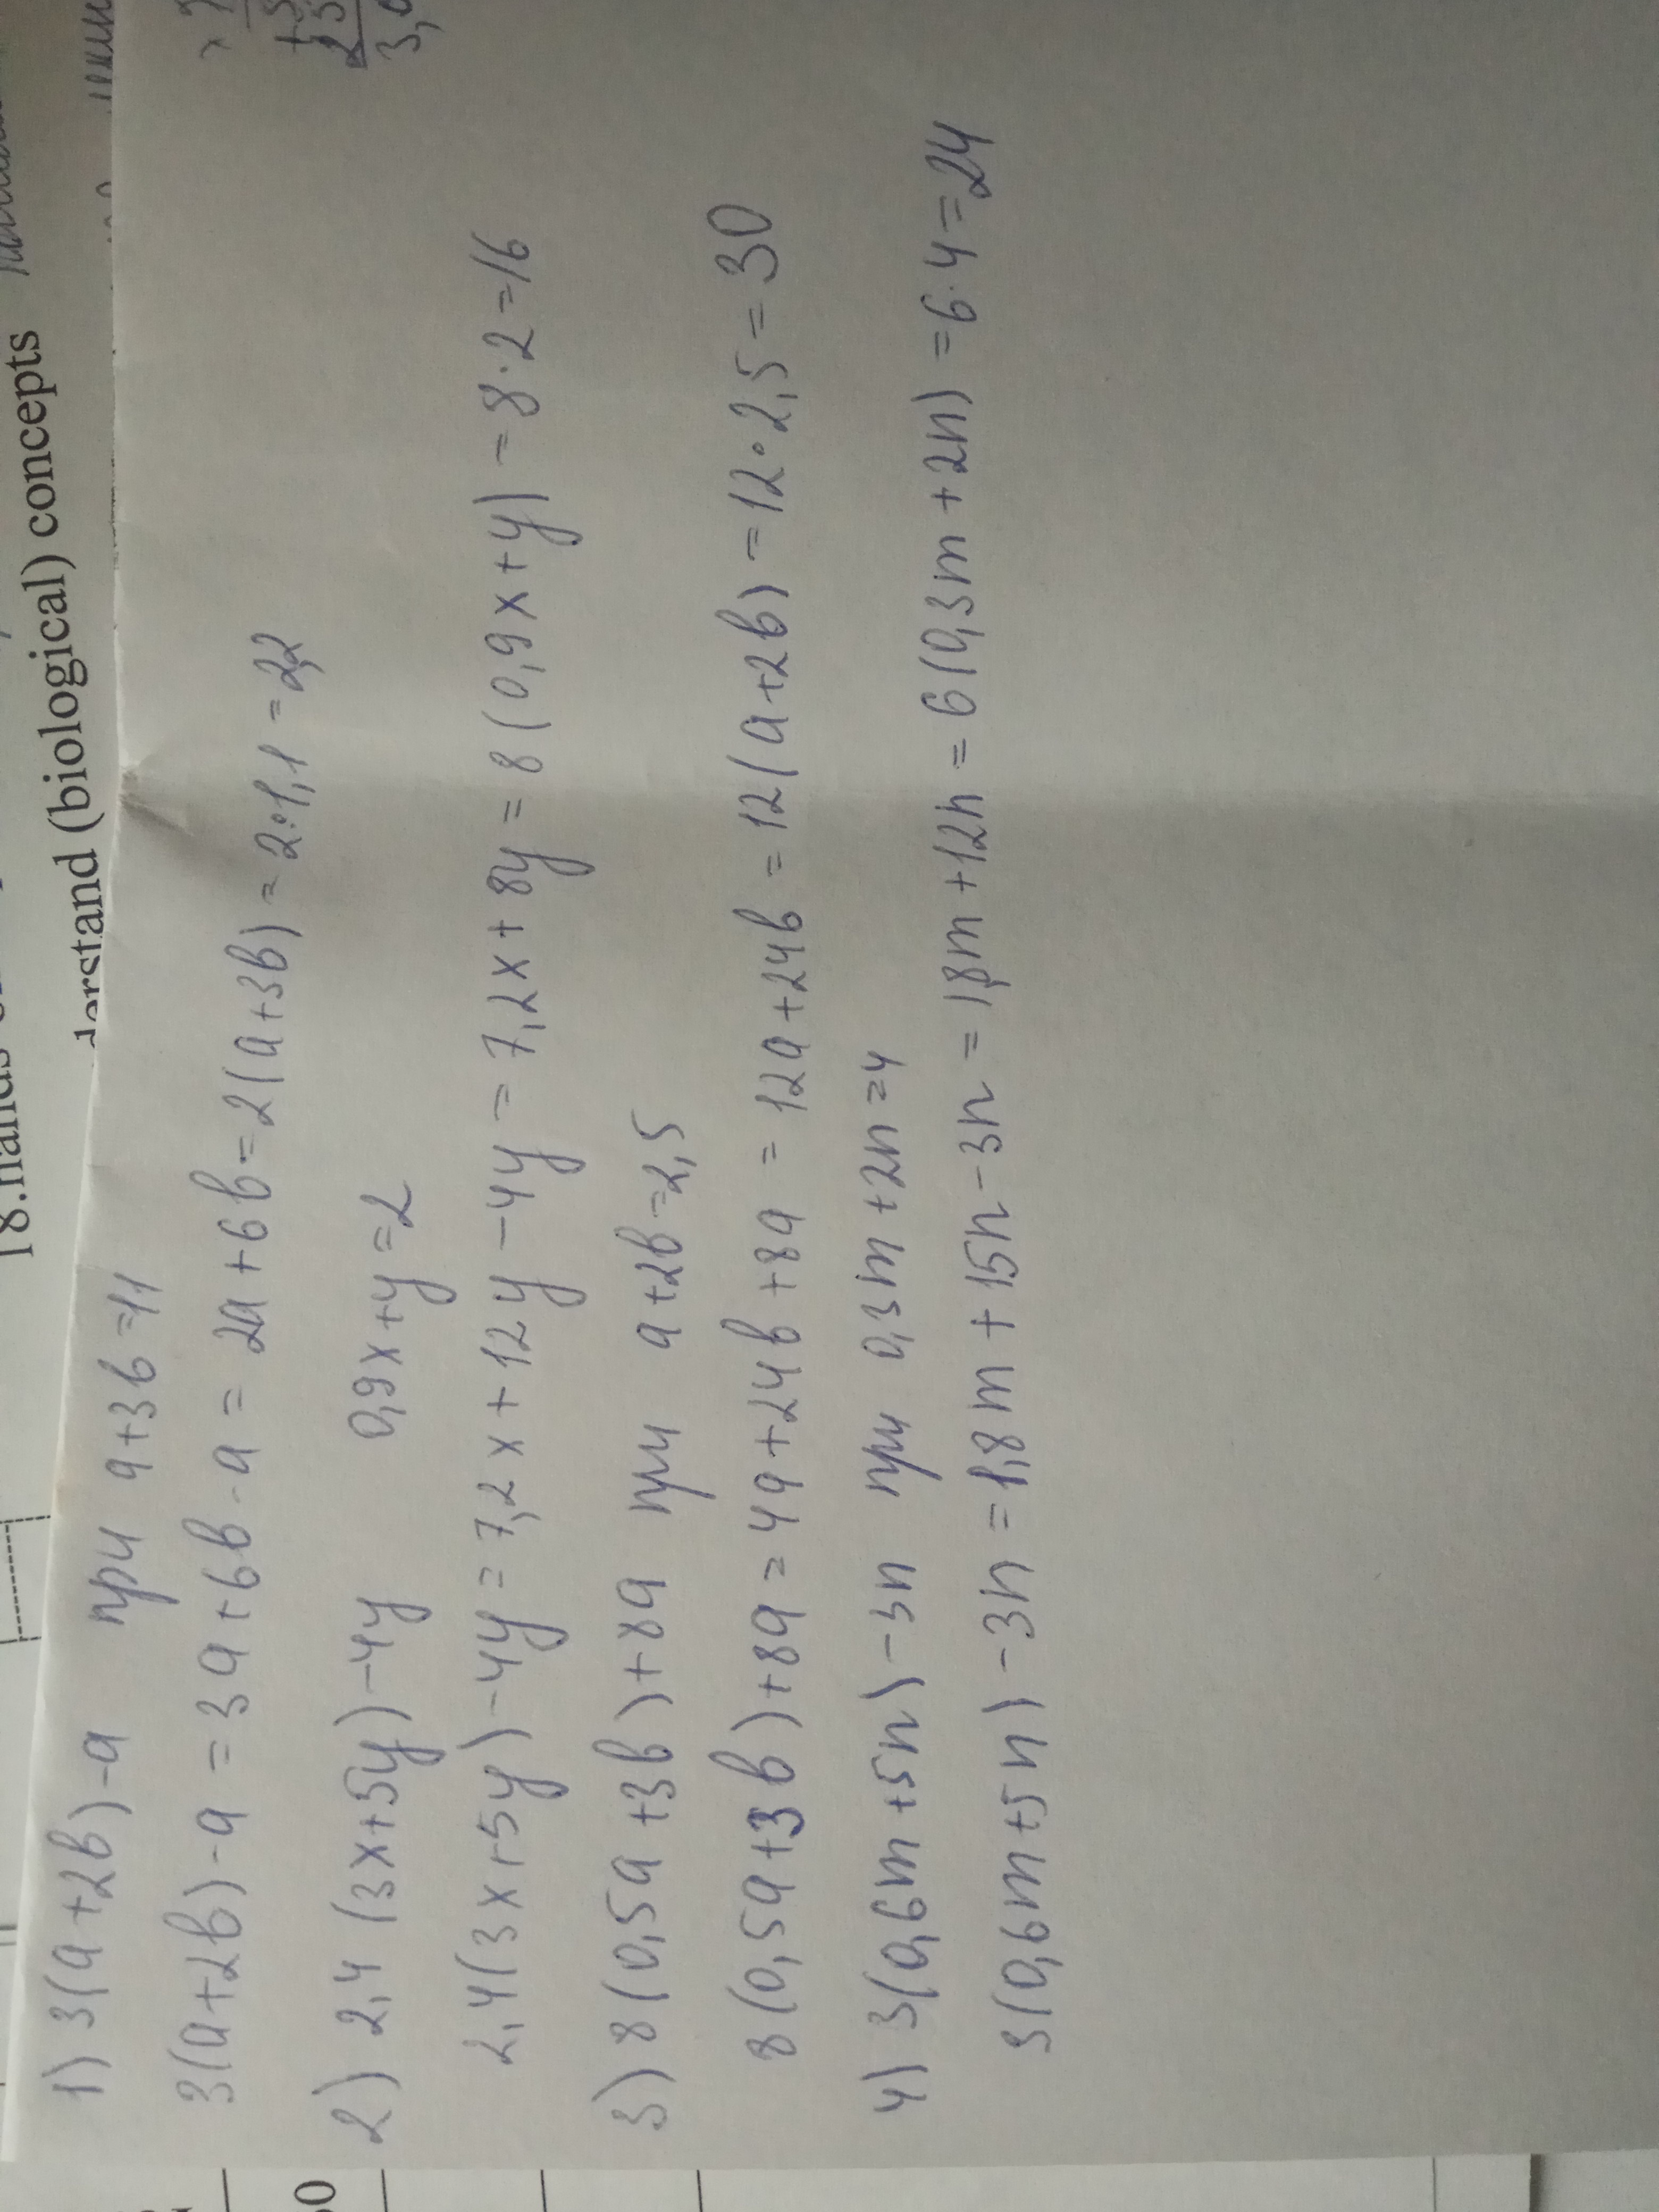 18.
derstand (biological) concepts
1) 3(a+2b)-a при a+3b=11
3(a+2b)-a=3a+6b-a=2a+6b=2(a+3b)=2·1,1=2,2
2) 2,4(3x+5y)-4y 0,9x+y=2
2,4(3x+5y)-4y=7,2x+12y-4y=7,2x+8y=8(0,9x+y)=8·2=16
3) 8(0,5a+3b)+8a при a+2b=2,5
8(0,5a+3b)+8a=4a+24b+8a=12a+24b=12(a+2b)=12·2,5=30
4) 3(0,6m+5n)-3n при 0,3m+2n=4
3(0,6m+5n)-3n=1,8m+15n-3n=1,8m+12n=6(0,3m+2n)=6·4=24